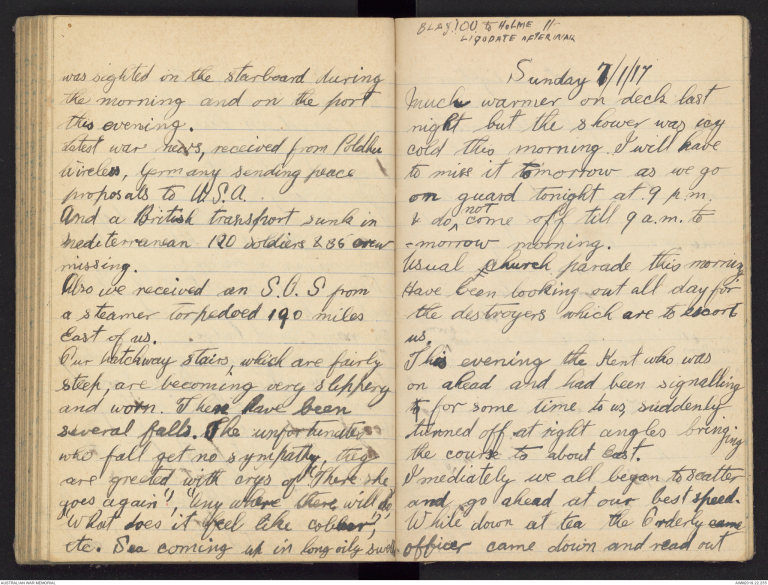 was sighted on the starboard during
the morning and on the port
this evening.
Latest war news, received from Poldhu
wireless, Germany sending peace
proposals to U.S.A.
And a British transport sunk in
Mediterranean 120 soldiers & 36 crew
missing.
Also we received an S.O.S from
a steamer torpedoed 190 miles
East of us.
Our hatchway stairs, which are fairly
steep, are becoming very slippery
and worn. There have been
several falls. The unfortunates
who fall get no sympathy, they
are greeted with crys of "There she
goes again"! "Any where there will do
"What does it feel like cobber"?
etc. Sea coming up in long oily swell
to HOLME
Sunday 7/1/17
Much warmer on deck last
night but the shower was icy
cold this morning. I will have
to miss it tomorrow as we go
on guard tonight at 9 p.m.
& do not come off till 9 a.m. to
-morrow morning.
Usual church parade this morning
Have been looking out all day for
the destroyers which are to escort
us.
This evening the Kent who was
on ahead and had been signalling
for some time to us, suddenly
turned off at right angles bringing
the course to about East.
Imediately we all began to scatter
and go ahead at our best speed.
While down at tea the Orderly
officer came down and read out
AUSTRALIAN WAR MEMORIAL